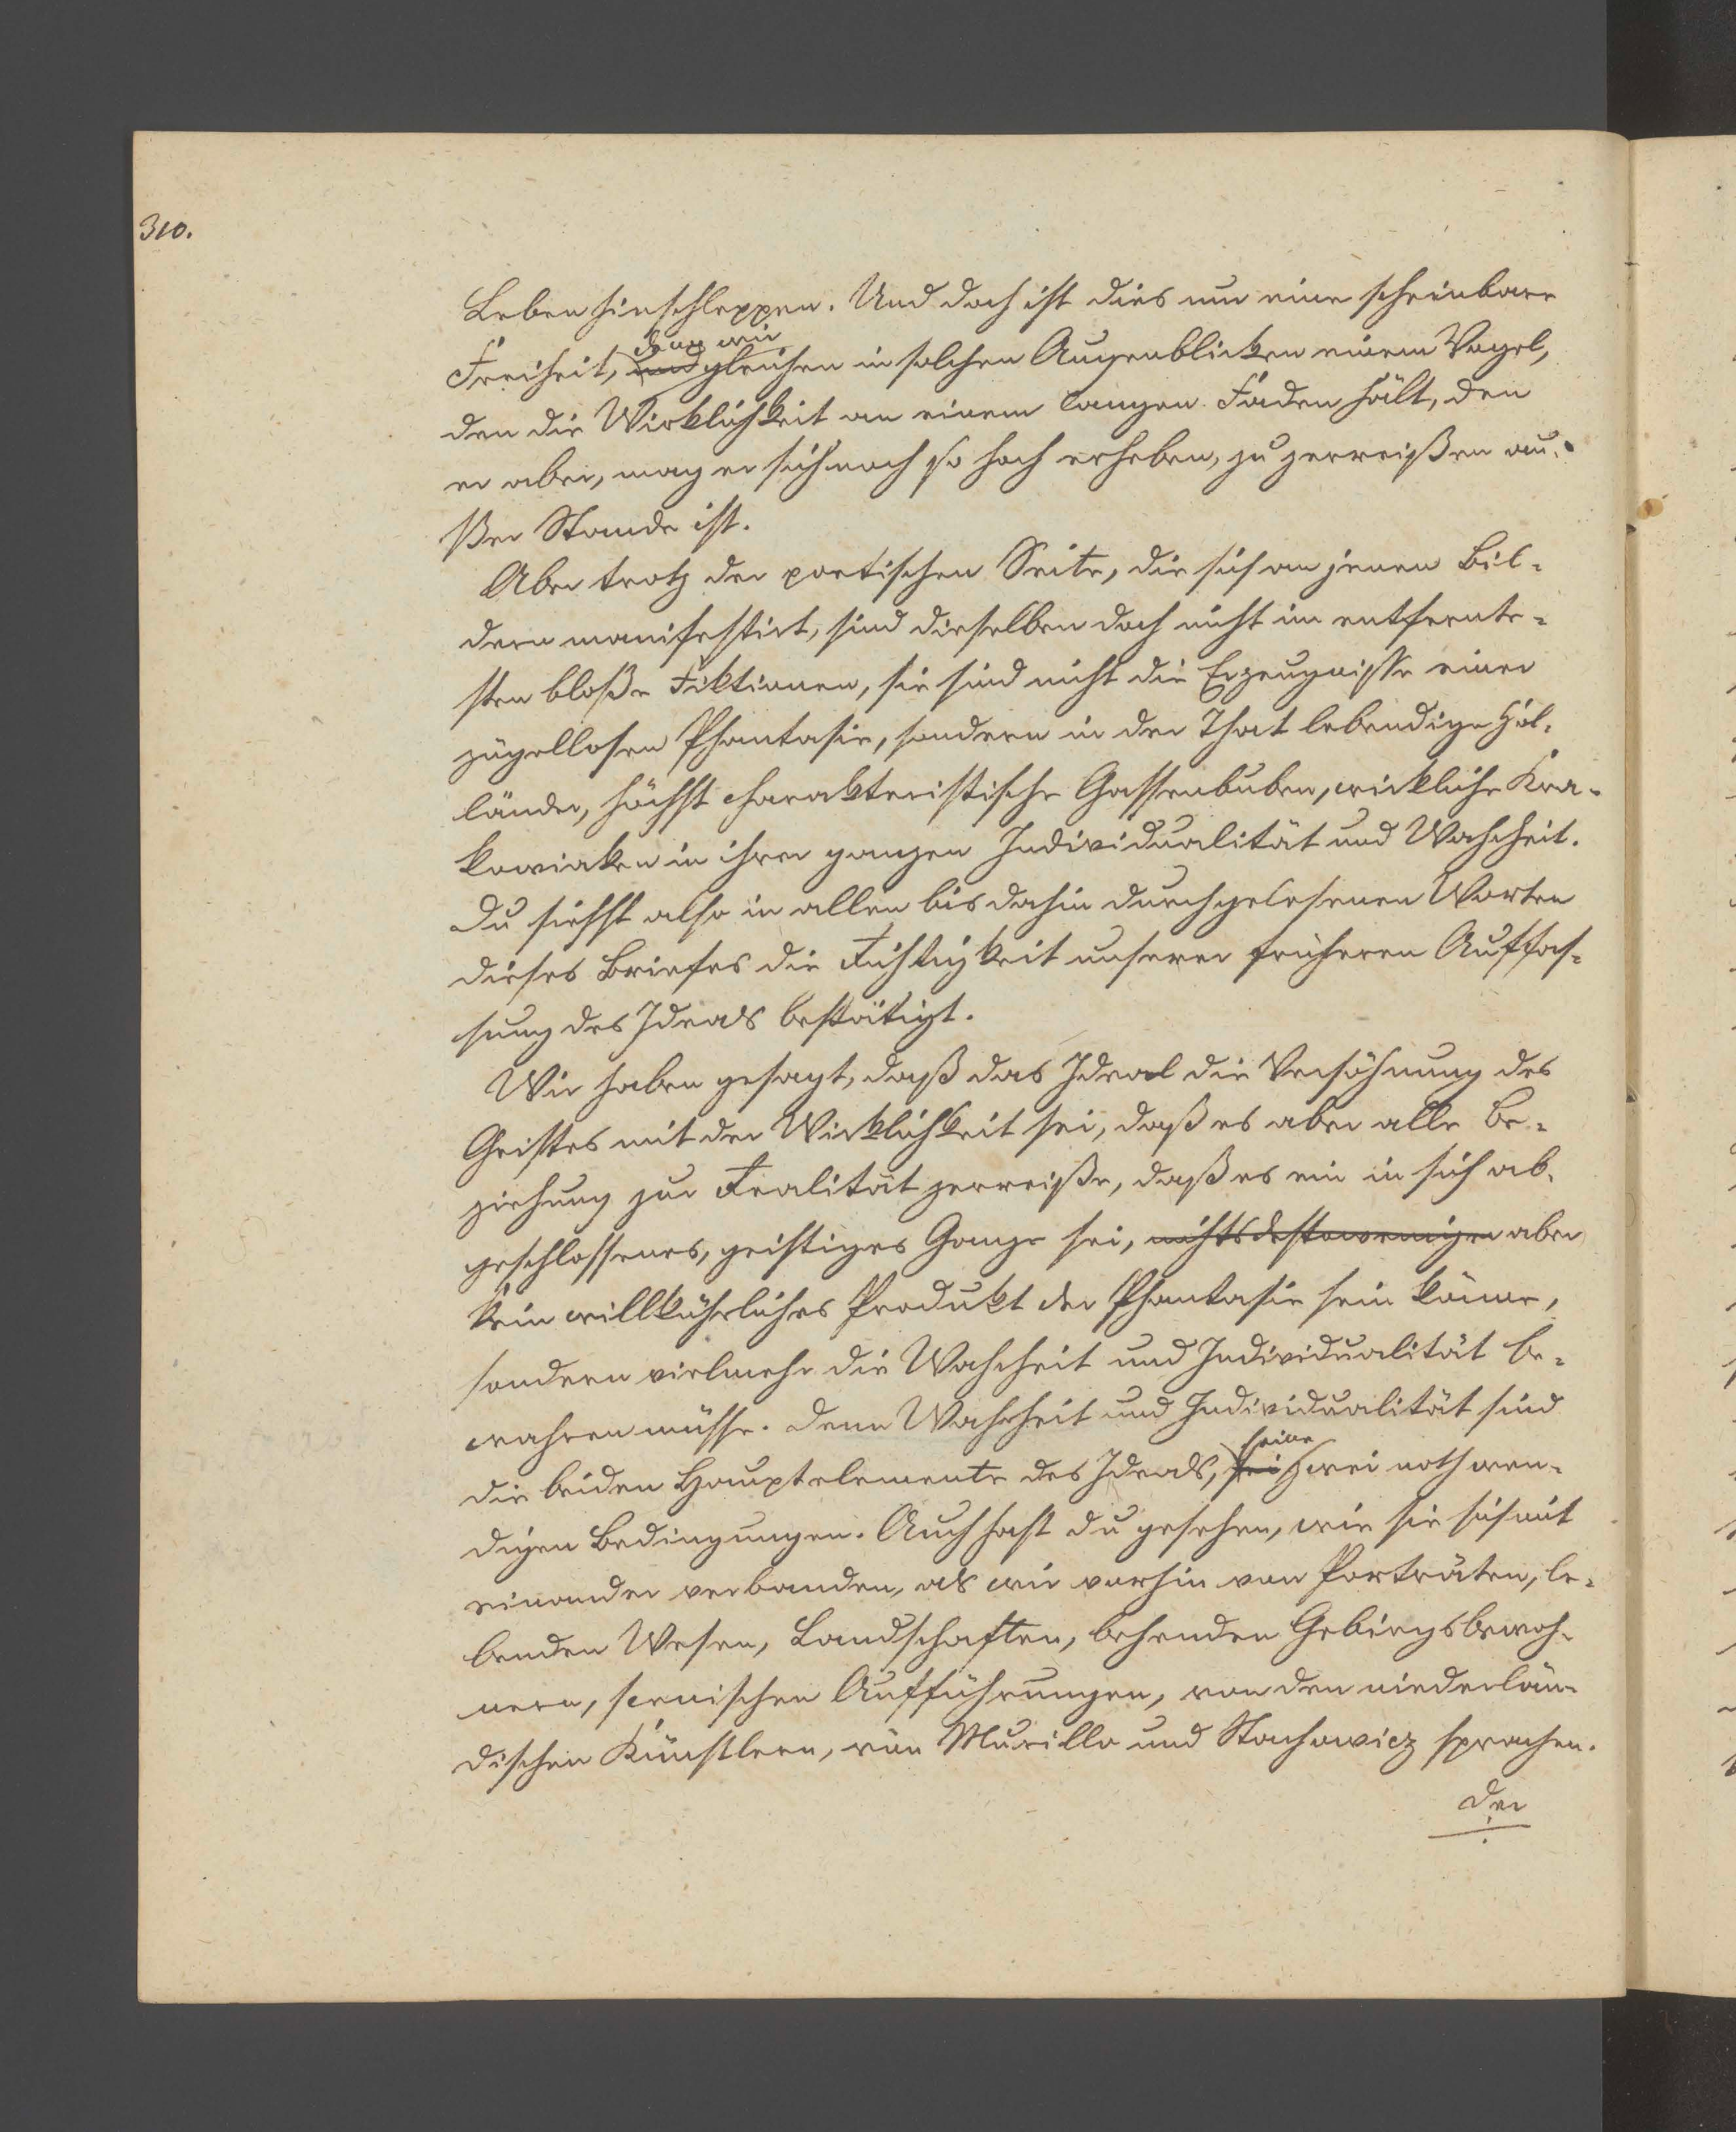 310.
Leben hinschleppen. Und doch ist dies nur eine scheinbare
denn wir
Freiheit, und gleichen in solchen Augenblicken einem Vogel,
den die Wirklichkeit an einem langen Faden hält, den
er aber, mag er sich noch so hoch erheben, zu zerreißen au-
ßer Stande ist.
Aber trotz der poetischen Seite, die sich an jenen Bil-
dern manifestirt, sind dieselben doch nicht im entfernte-
sten bloße Fiktionen, sie sind nicht die Erzeugnisse einer
zügellosen Phantasie, sondern in der That lebendige Hol-
länder, höchst charakteristische Gassenbuben, wirkliche Kra-
kowiaken in ihrer ganzen Individualität und Wahrheit.
Du siehst also in allen bis dahin durchgelesenen Worten
dieses Briefes die Richtigkeit unserer früheren Auffas-
sung des Ideals bestätigt.
Wir haben gesagt, daß das Ideal die Versöhnung des
Geistes mit der Wirklichkeit sei, daß es aber alle Be-
ziehung zur Realität zerreiße, daß es ein in sich ab-
geschlossenes, geistiges Ganze sei, nichtsdestoweniger aber
kein willkührliches Produkt der Phantasie sein könne,
sondern vielmehr die Wahrheit und Individualität be-
wahren müsse. Denn Wahrheit und Individualität sind
seine
die beiden Hauptelemente des Ideals, sei zwei nothwen-
digen Bedingungen. Auch hast du gesehen, wie sie sich mit
einander verbanden, als wir vorhin von Porträten, le-
benden Wesen, Landschaften, behenden Gebirgsbewoh-
nern, scenischen Aufführungen, von den niederlän-
dischen Künstlern, von Murillo und Stachowicz sprachen.
Der